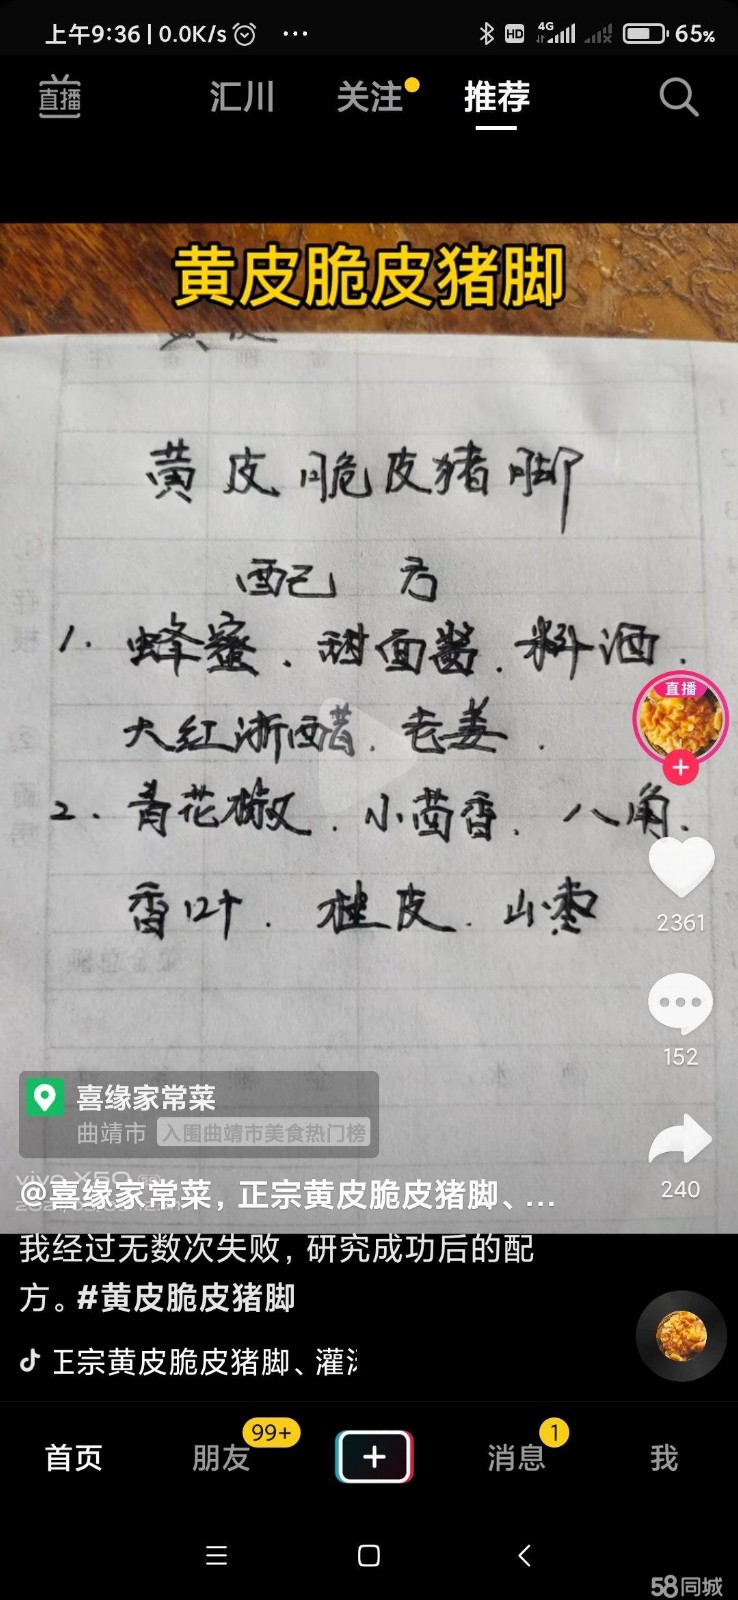 上午9:36 | 0.0K/s ...
HD 4G 65%
直播 汇川 关注 推荐
黄皮脆皮猪脚
黄皮脆皮猪脚
配方
1. 蜂蜜、甜面酱、料酒、
大红浙醋、老姜、
2、青花椒、小茴香、八角、
香叶、桂皮、山枣
直播
2361
152
240
喜缘家常菜
曲靖市 入围曲靖市美食热门榜
vivo X50
@喜缘家常菜，正宗黄皮脆皮猪脚、...
我经过无数次失败，研究成功后的配
方。#黄皮脆皮猪脚
正宗黄皮脆皮猪脚、灌
首页 朋友 99+ 消息 1 我
58同城